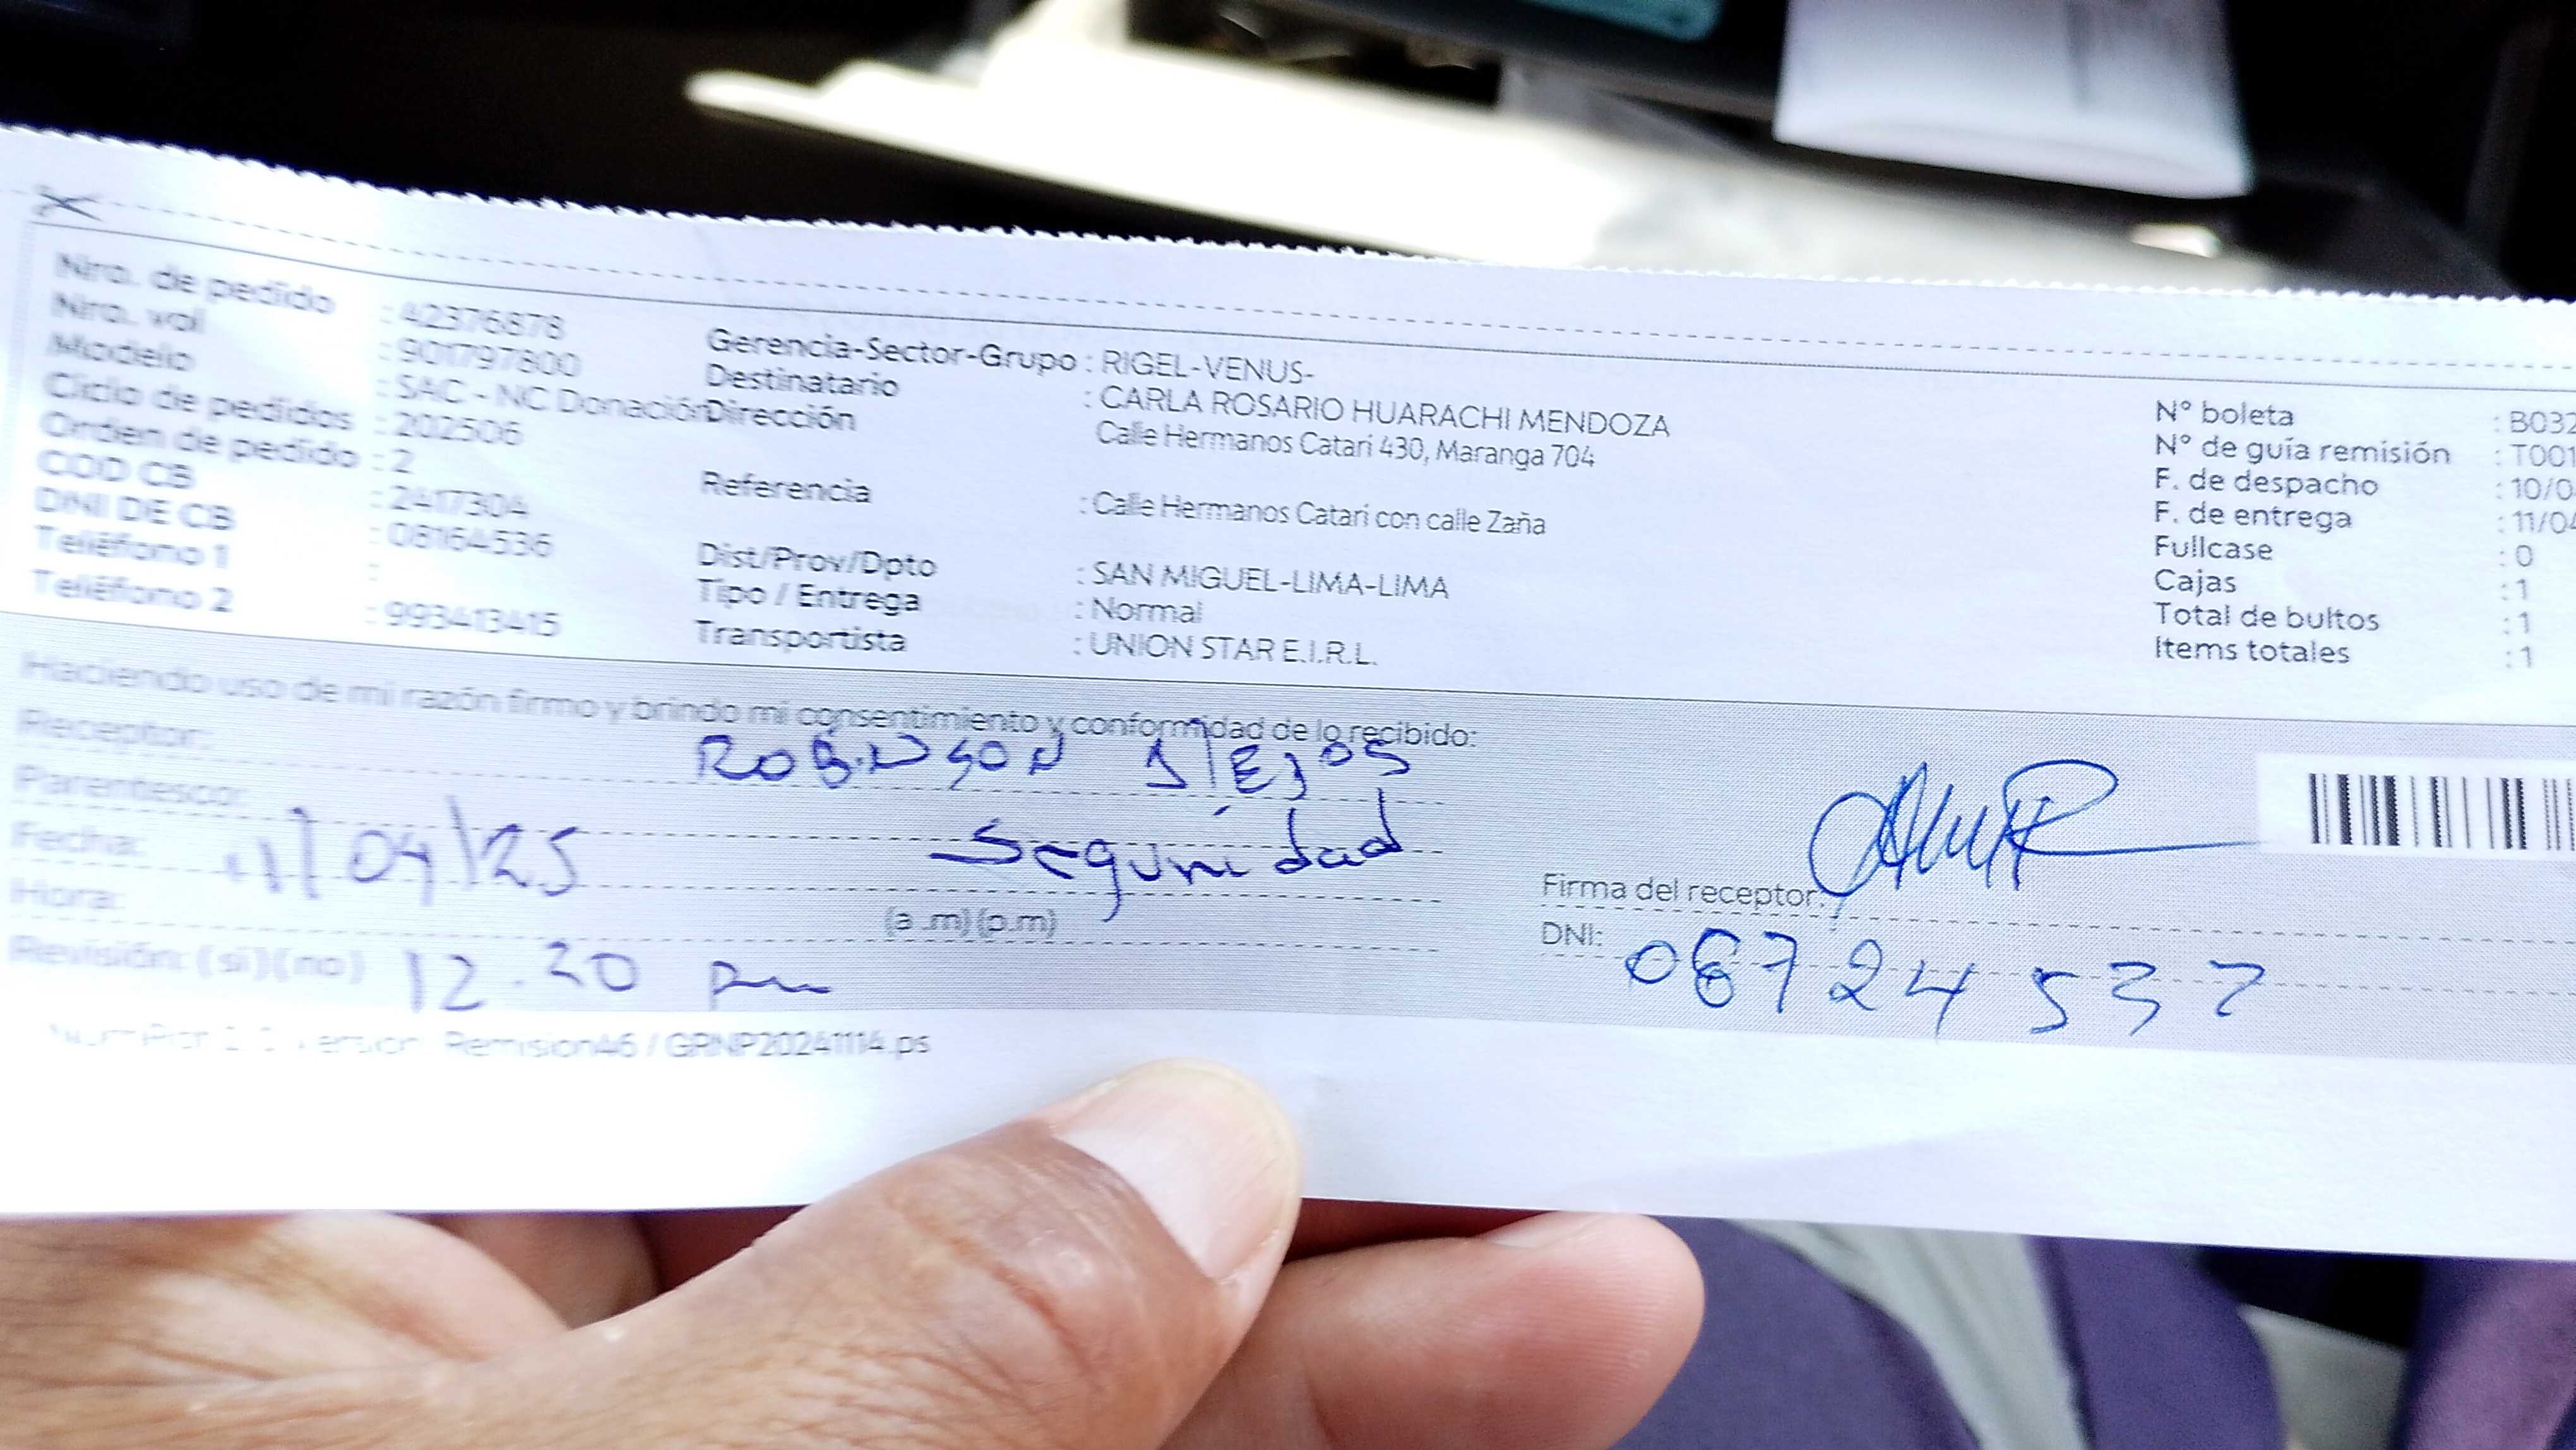 Nro. de pedido : 42376878
Nro. vol : 901797800
Modelo : SAC - NC Donación
Ciclo de pedidos : 202506
Orden de pedido : 2
COD CB : 2417304
DNI DE CB : 08164536
Teléfono 1 :
Teléfono 2 : 993413415
Gerencia-Sector-Grupo : RIGEL-VENUS-
Destinatario : CARLA ROSARIO HUARACHI MENDOZA
Dirección Calle Hermanos Catari 430, Maranga 704
Referencia : Calle Hermanos Catari con calle Zaña
Dist/Prov/Dpto : SAN MIGUEL-LIMA-LIMA
Tipo / Entrega : Normal
Transportista : UNION STAR E.I.R.L.
N° boleta : B032
N° de guía remisión : T001
F. de despacho : 10/0
F. de entrega : 11/04
Fullcase : 0
Cajas : 1
Total de bultos : 1
Items totales : 1
Haciendo uso de mi razón firmo y brindo mi consentimiento y conformidad de lo recibido:
Receptor: ROBINSON
Parentesco: Seguridad
Fecha: 11/04/25
Hora: (a.m) (p.m)
Revisión: (si) (no) 12.20 pm
Firma del receptor:
DNI: 08724537
Remision46 / GRNP20241114.ps